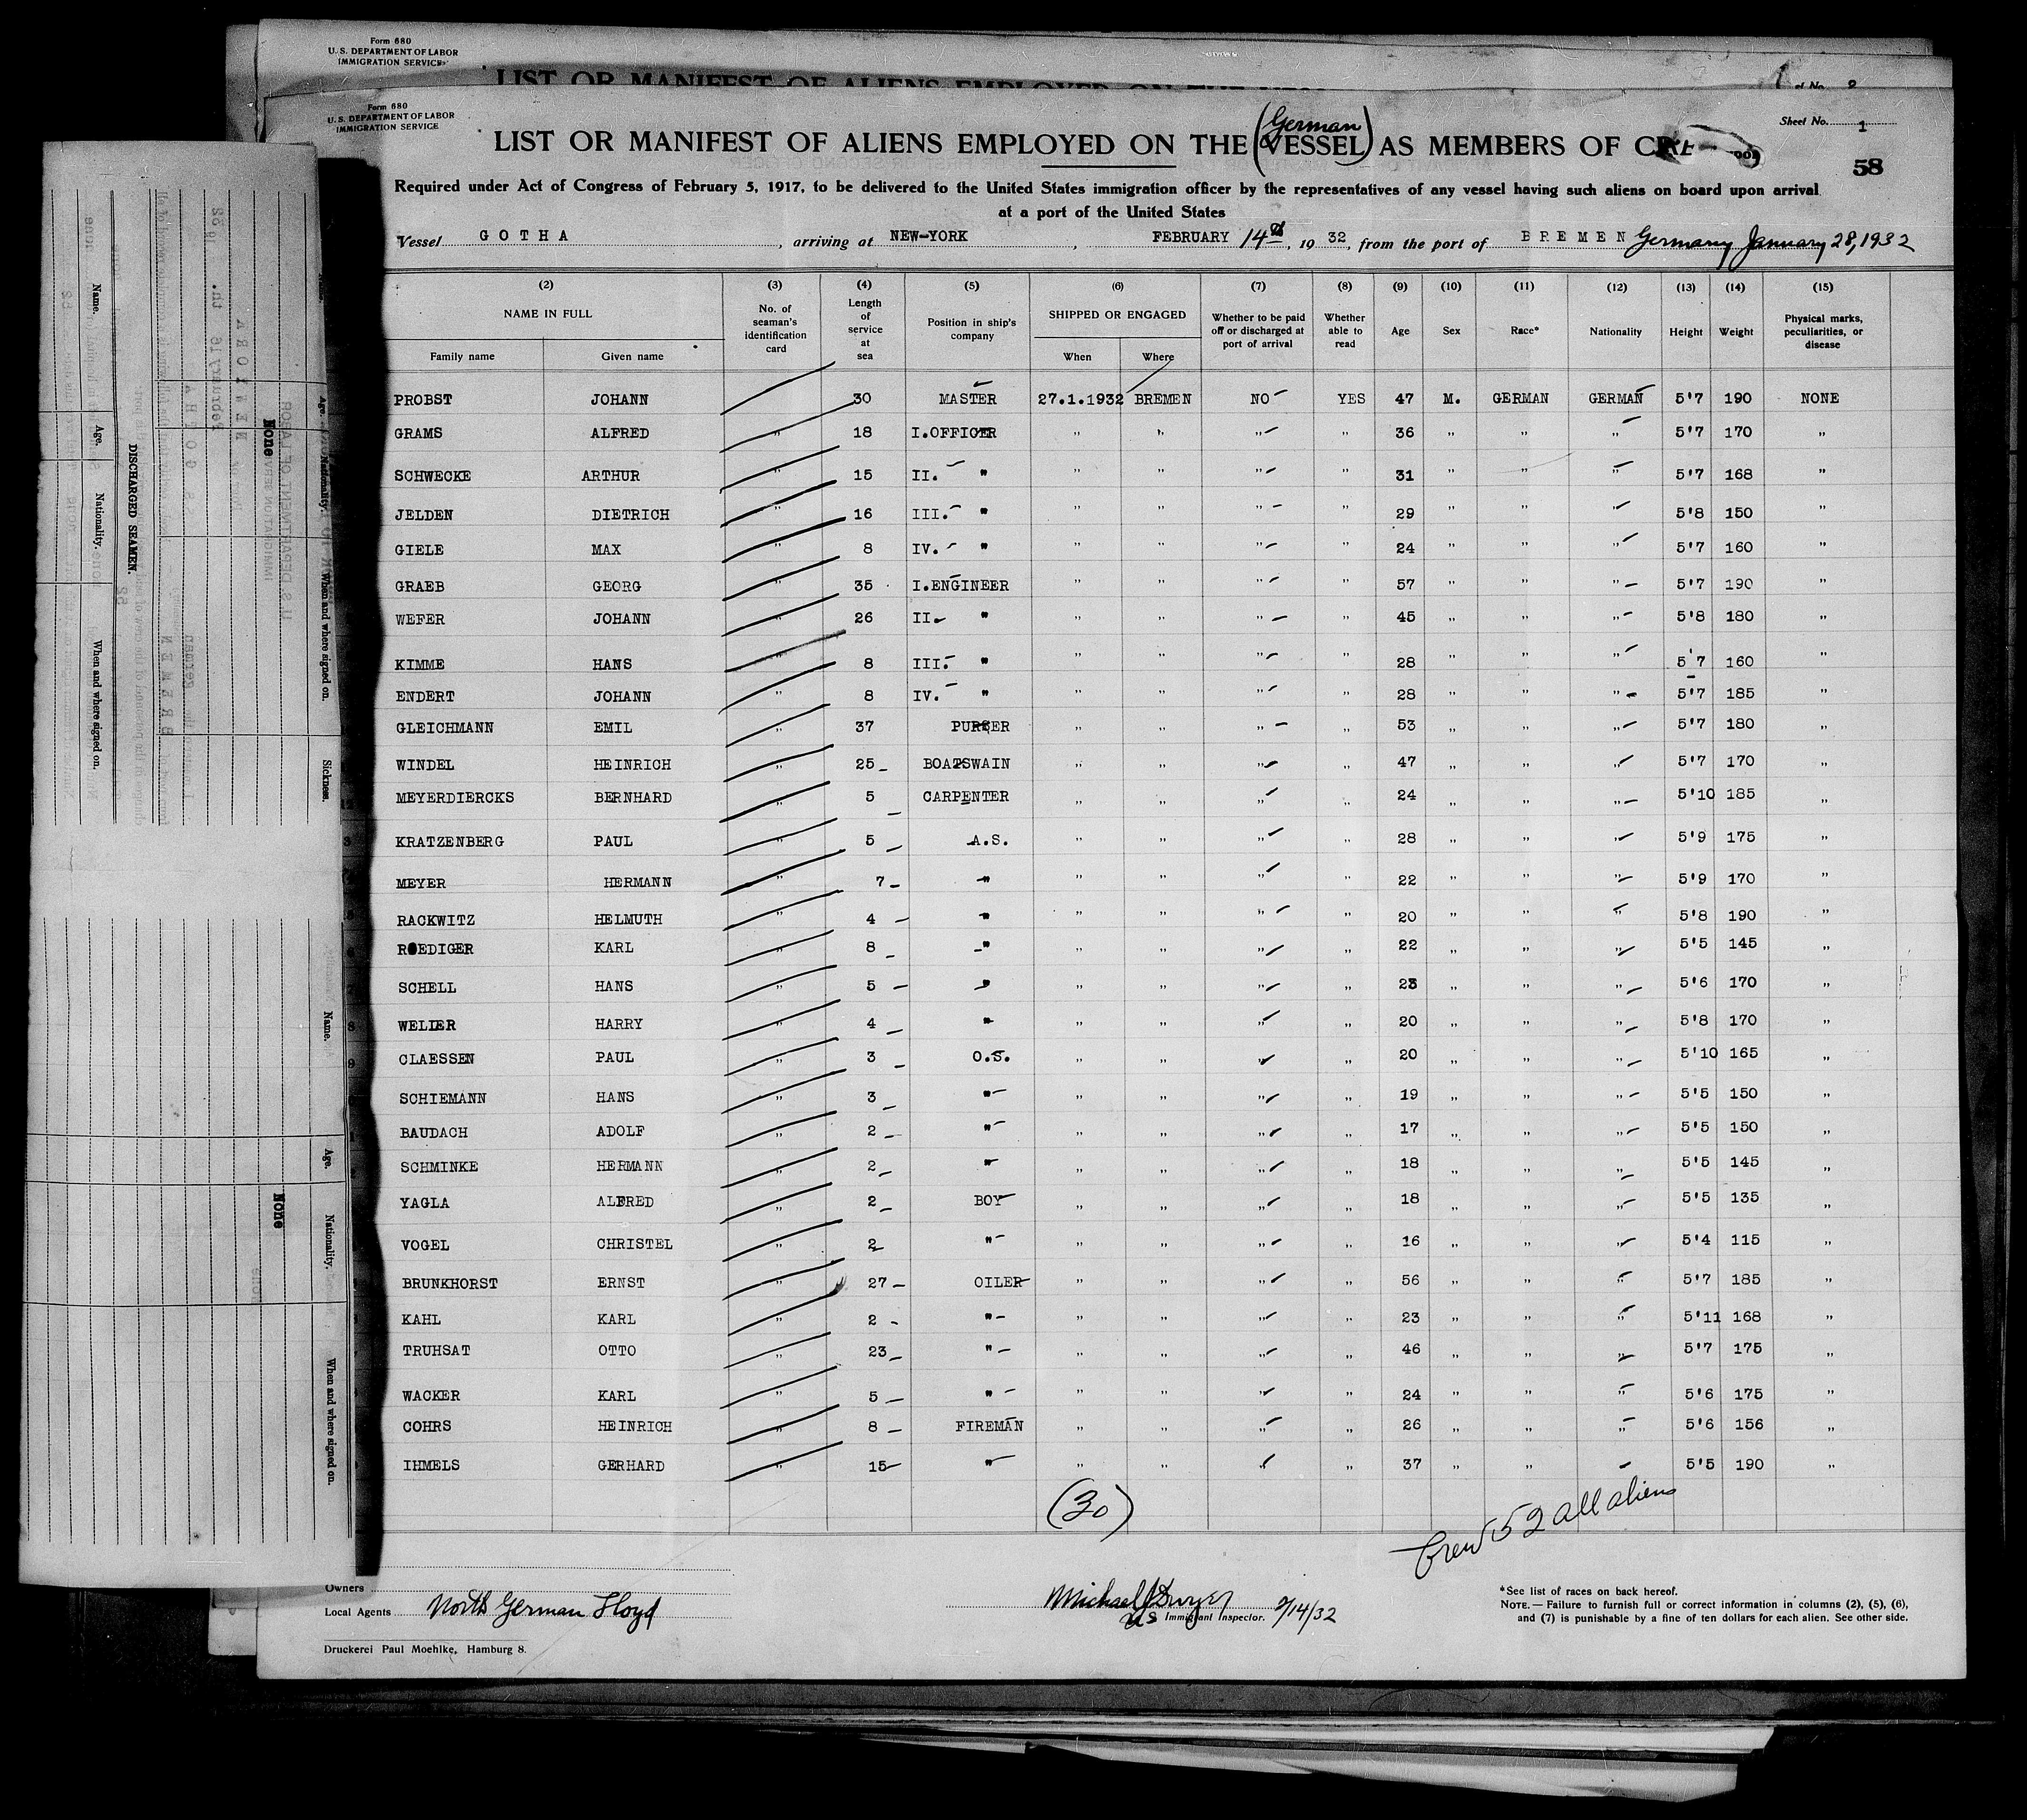 Form 680
U. S. DEPARTMENT OF LABOR
IMMIGRATION SERVICE
LIST OR MANIFEST OF ALIENS EMPLOYED ON THE
Form 680
U. S. DEPARTMENT OF LABOR
IMMIGRATION SERVICE
Sheet No. 1
LIST OR MANIFEST OF ALIENS EMPLOYED ON THE (German VESSEL) AS MEMBERS OF
58
Required under Act of Congress of February 5, 1917, to be delivered to the United States immigration officer by the representatives of any vessel having such aliens on board upon arrival
at a port of the United States
Vessel GOTHA, arriving at NEW-YORK, FEBRUARY 14th, 1932, from the port of BREMEN Germany January 28, 1932
(2) (3) (4) (5) (6) (7) (8) (9) (10) (11) (12) (13) (14) (15)
NAME IN FULL No. of seaman's identification card Length of service at sea Position in ship's company SHIPPED OR ENGAGED Whether to be paid off or discharged at port of arrival Whether able to read Age Sex Race* Nationality Height Weight Physical marks, peculiarities, or disease
Family name Given name When Where
PROBST JOHANN 30 MASTER 27.1.1932 BREMEN NO YES 47 M. GERMAN GERMAN 5'7 190 NONE
GRAMS ALFRED " 18 I.OFFICER " " " " 36 " " " 5'7 170 "
SCHWECKE ARTHUR " 15 II. " " " " " 31 " " " 5'7 168 "
JELDEN DIETRICH " 16 III. " " " " " 29 " " " 5'8 150 "
GIELE MAX " 8 IV. " " " " " 24 " " " 5'7 160 "
GRAEB GEORG " 35 I.ENGINEER " " " " 57 " " " 5'7 190 "
WEFER JOHANN " 26 II. " " " " " 45 " " " 5'8 180 "
KIMME HANS " 8 III. " " " " " 28 " " " 5'7 160 "
ENDERT JOHANN " 8 IV. " " " " " 28 " " " 5'7 185 "
GLEICHMANN EMIL " 37 PURSER " " " " 53 " " " 5'7 180 "
WINDEL HEINRICH " 25 BOATSWAIN " " " " 47 " " " 5'7 170 "
MEYERDIERCKS BERNHARD " 5 CARPENTER " " " " 24 " " " 5'10 185 "
KRATZENBERG PAUL " 5 A.S. " " " " 28 " " " 5'9 175 "
MEYER HERMANN " 7 " " " " " 22 " " " 5'9 170 "
RACKWITZ HELMUTH " 4 " " " " " 20 " " " 5'8 190 "
ROEDIGER KARL " 8 " " " " " 22 " " " 5'5 145 "
SCHELL HANS " 5 " " " " " 23 " " " 5'6 170 "
WELIER HARRY " 4 " " " " " 20 " " " 5'8 170 "
CLAESSEN PAUL " 3 O.S. " " " " 20 " " " 5'10 165 "
SCHIEMANN HANS " 3 " " " " " 19 " " " 5'5 150 "
BAUDACH ADOLF " 2 " " " " " 17 " " " 5'5 150 "
SCHMINKE HERMANN " 2 " " " " " 18 " " " 5'5 145 "
YAGLA ALFRED " 2 BOY " " " " 18 " " " 5'5 135 "
VOGEL CHRISTEL " 2 " " " " " 16 " " " 5'4 115 "
BRUNKHORST ERNST " 27 OILER " " " " 56 " " " 5'7 185 "
KAHL KARL " 2 " " " " " 23 " " " 5'11 168 "
TRUHSAT OTTO " 23 " " " " " 46 " " " 5'7 175 "
WACKER KARL " 5 " " " " " 24 " " " 5'6 175 "
COHRS HEINRICH " 8 FIREMAN " " " " 26 " " " 5'6 156 "
IHMELS GERHARD " 15 " " " " " 37 " " " 5'5 190 "
(30)
Crew 52 all aliens
Owners
Local Agents North German Lloyd
Michael J Dwyer
US Immigrant Inspector. 2/14/32
*See list of races on back hereof.
NOTE.— Failure to furnish full or correct information in columns (2), (5), (6),
and (7) is punishable by a fine of ten dollars for each alien. See other side.
Druckerei Paul Moehlke, Hamburg 8.
DISCHARGED SEAMEN.
Name. Age. Nationality. When and where signed on.
None
Age. Nationality. When and where signed on. Sickness.
Name. Age. Nationality. When and where signed on.
None